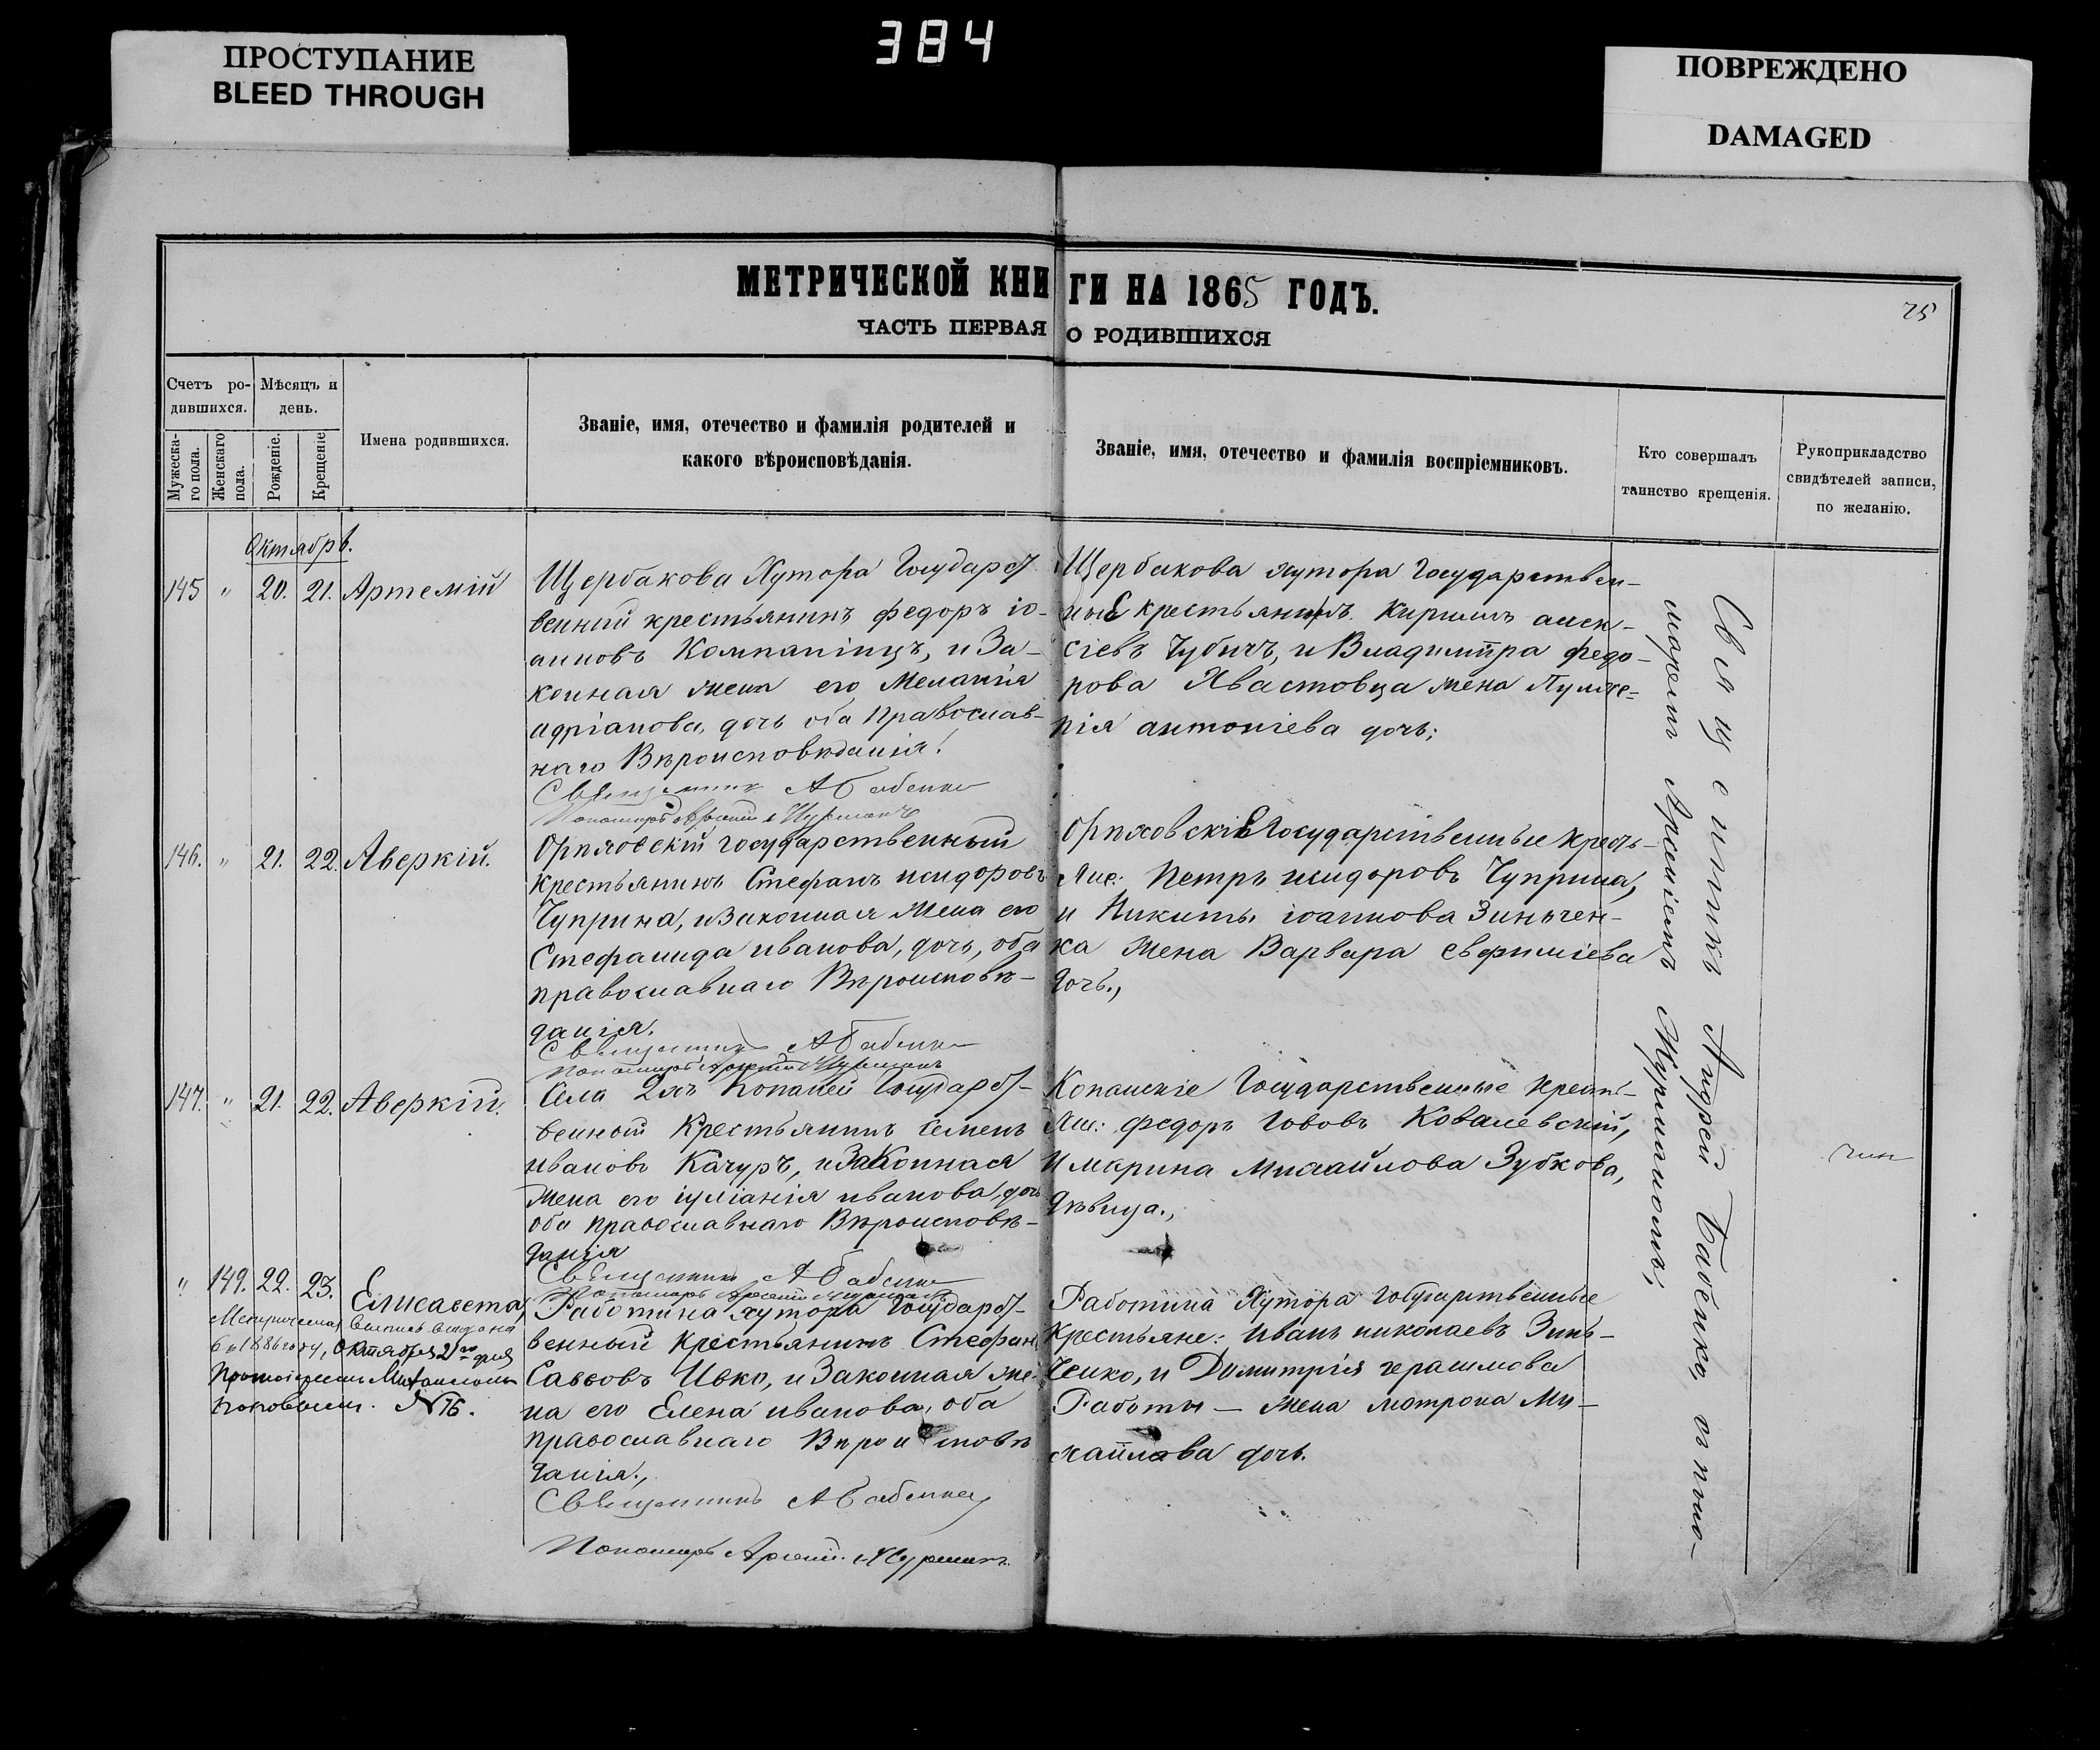 384
ПРОСТУПАНИЕ
BLEED THROUGH
ПОВРЕЖДЕНО
DAMAGED
МЕТРИЧЕСКОЙ КНИГИ НА 1865 ГОДЪ.
ЧАСТЬ ПЕРВАЯ О РОДИВШИХСЯ
75
Счетъ ро-
дившихся.
Мѣсяцъ и
день.
Мужеска-
го пола.
Женскаго
пола.
Рожденіе.
Крещеніе
Имена родившихся.
Званіе, имя, отечество и фамилія родителей и
какого вѣроисповѣданія.
Званіе, имя, отечество и фамилія воспріемниковъ.
Кто совершалъ
таинство крещенія.
Рукоприкладство
свидѣтелей записи,
по желанію.
Октябрь.
145 " 20. 21. Артемій
Щербакова Хутора Государст
венний крестьянинъ федоръ іо-
анновъ Компаніецъ, и За-
конная жена его Меланія
адріанова, дочь оба Православ-
наго Вѣроисповѣданія!
Священникъ А Бабенко
Пономарь Арсеній Журманъ
Щербакова хутора Государствен-
ныЕ крестьянинъ Кирилъ алек-
сіевъ Чубичъ, и Владиміра федо-
рова Хвастовца жена Пулхе-
рія антоніева дочь;
146. " 21. 22. Аверкій.
Орѣховскій государственный
крестьянинъ Стефанъ исидоровъ
Чуприна, и Законная жена его
Стефанида иванова, дочь, оба
православнаго Вѣроисповѣ-
данія.
Священникъ А Бабенко
Пономарь Арсеній Журманъ
ОрѣховскіЕ Государственные кресть-
яне: Петръ исидоровъ Чуприна,
и Никиты іоаннова Зинчен-
ка жена Варвара евфиміева
дочь.,
147. " 21. 22. Аверкій.
Села Копаней Государст-
венный Крестьянинъ семенъ
ивановъ Качуръ, и Законная
жена его іуліанія иванова, дочь
оба православнаго Вѣроисповѣ-
данія
Священникъ А Бабенко
Пономарь Арсеній Журманъ
Копанскіе Государственные кресть-
яне: федоръ Гововъ Ковалевскій,
и марина михайлова Зубкова,
дѣвица.,
" 149. 22. 23. Елисавета,
Метрическая выпись выдана
1886 году, Октября 2го дня
Поповымъ. N 76.
Работина хутора Государст-
венный крестьянинъ Стефанъ
Саввовъ Ивко, и Законная же-
на его Елена иванова, оба
православнаго Вѣроисповѣ
данія.,
Священникъ А Бабенко
Пономарь Арсеній Журманъ.
Работина Хутора государственные
крестьяне: иванъ николаевъ Зин-
ченко, и Димитрія герасимова
Работы - жена матрона Ми-
хайлова дочь.
Священникъ Андрей Бабенко, съ поно-
маремъ Арсеніемъ Журманомъ;